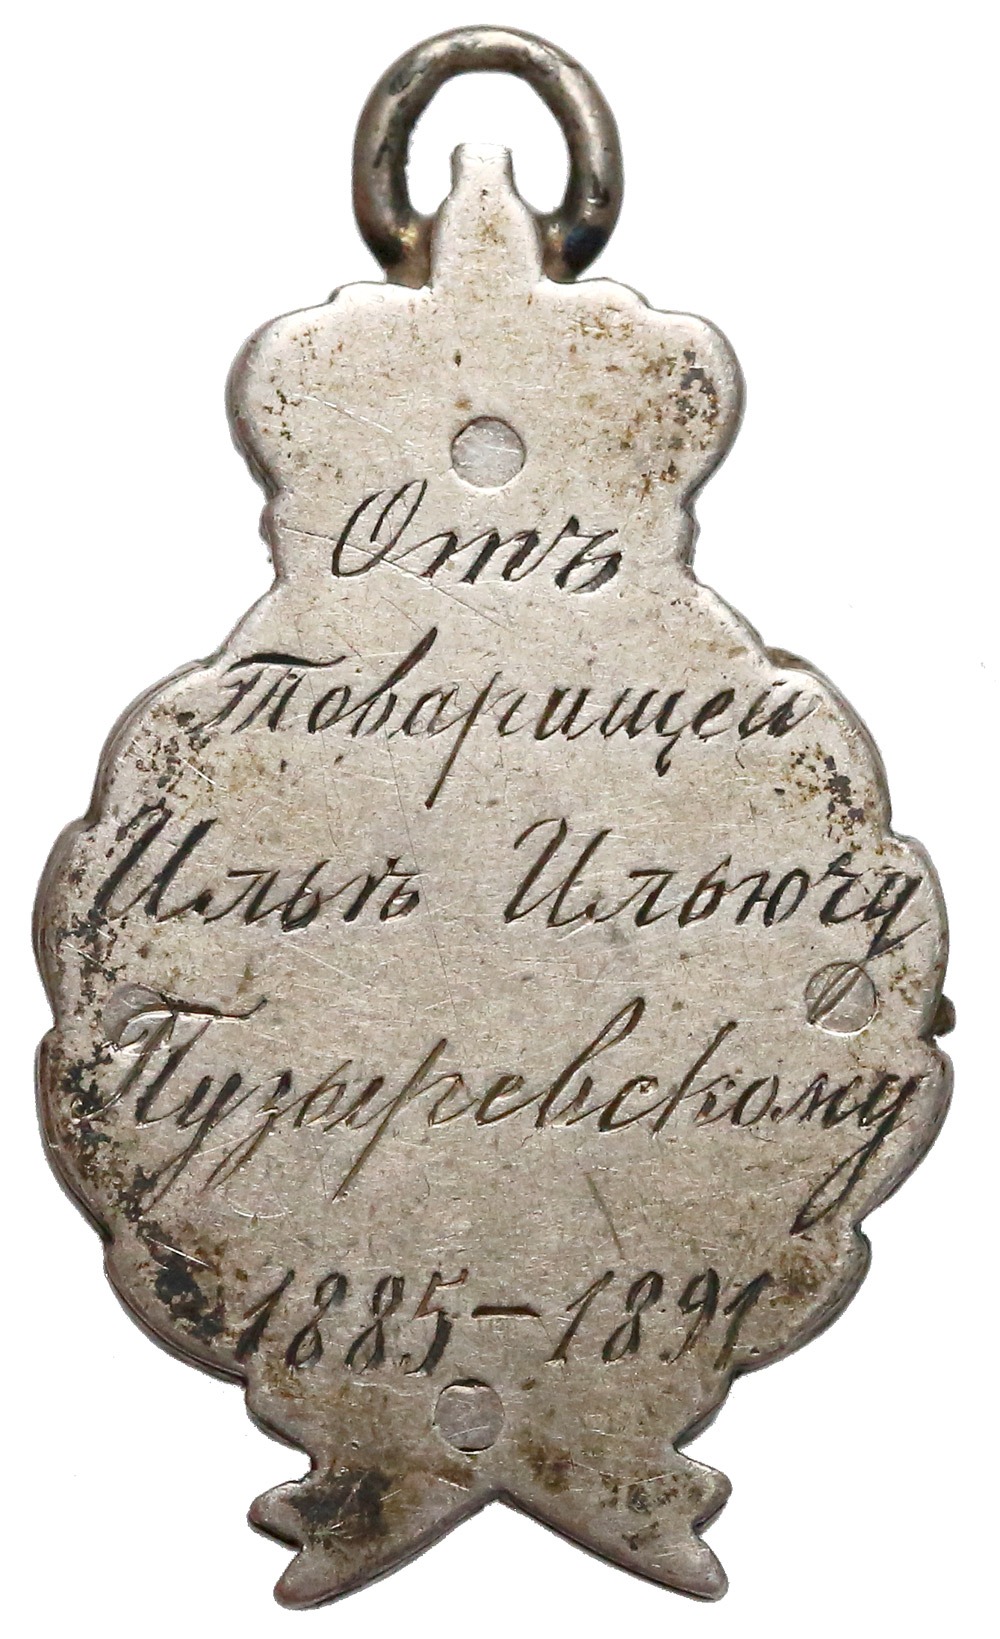 Отъ
Товарищей
Ильѣ Ильючу
Пузыревскому
1885-1891.